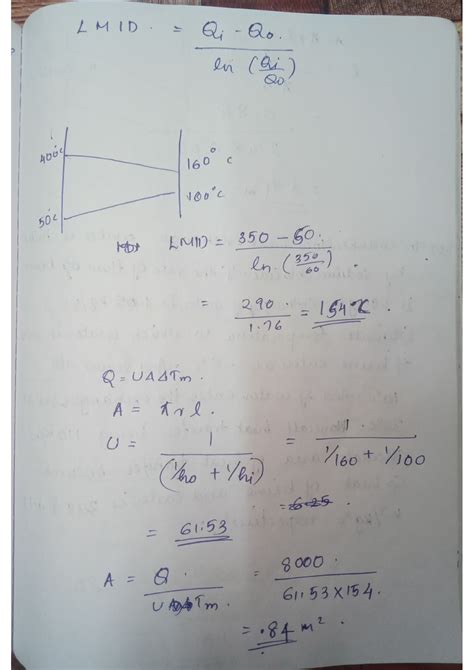 LMTD. = θi - θo. / ln (θi/θo)
400°C
160°C
50°C
100°C
LMTD = 350 - 60. / ln. (350/60) .
= 290. / 1.76 = 164°C.
Q = UAΔTm.
A = πrl.
U = 1 / (1/ho + 1/hi) = 1 / 1/160 + 1/100
= 61.53
A = Q. / UΔTm. = 8000. / 61.53 x 154.
= .84 m².